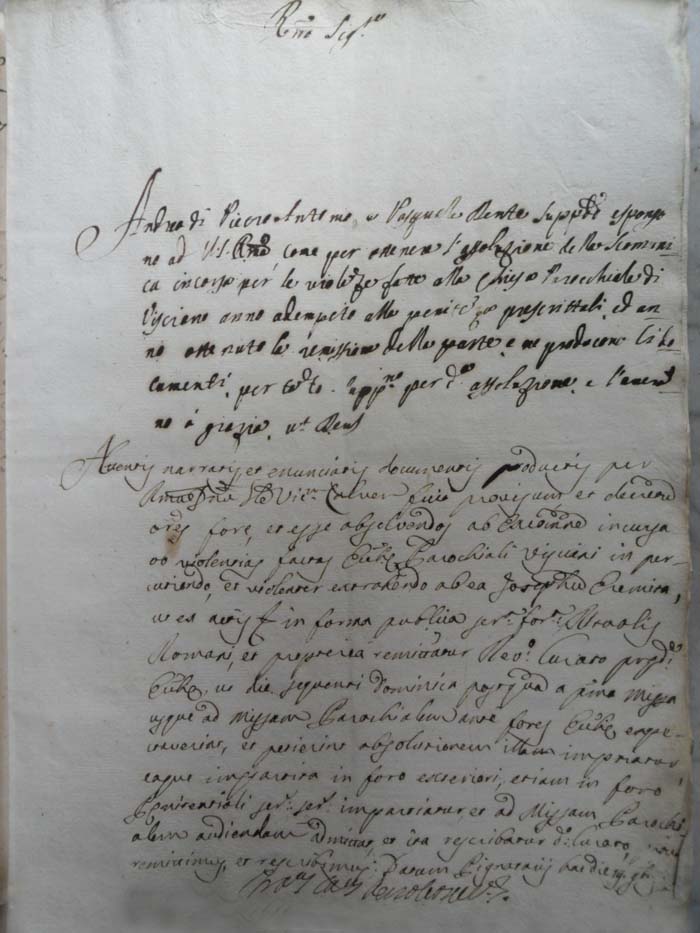 Rmo Sigre
Andrea di Pietro Antonio, e Pasquale Rente suppti espongo
no ad V.S. Rma come per ottenere l'assoluzione della Scommu
ca incorsa per le violeze fatte alla Chiesa Parochiale di
Visciano anno adempito alla peniteza prescrittali, ed an
no ottenuto la remissione della parte, e ne producono li do
camenti, per tato supp.no per da assoluzione, e l'averan
no à grazia, ut Deus
Attentis narratis, et enunciatis documentis productis per
fuit provisum et decretu
ores fore, et esse absolvendos ab incursa
ob violentias factas Parochiali Visciani in per
cutiendo, et violenter extrahendo ab ea Josephu Eremita,
ut ex actis in forma publica ser. for. Ritualis
Romani, et propterea remittatur Rev.o Curato
ut die sequenti Dominica postqua a pma Missa
usque ad Missam Parochialem ante fores
et petierint absolutionem illam impertiatur
eaque impartita in foro exteriori, etiam in foro
Penitentiali ser. ser. impartiatur et ad Missam Parochi
alem audiendam admittat, et ita rescribatur do Curato,
remittimus, et rescribimus. Datum Pignatarii hac die